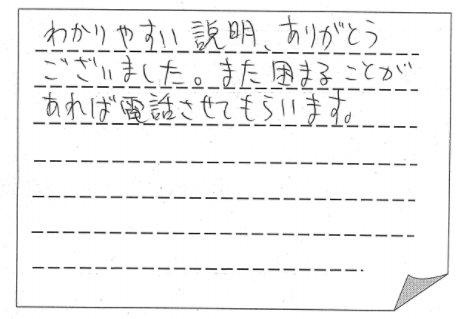 わかりやすい説明、ありがとう
ございました。また困まることが
あれば電話させてもらいます。